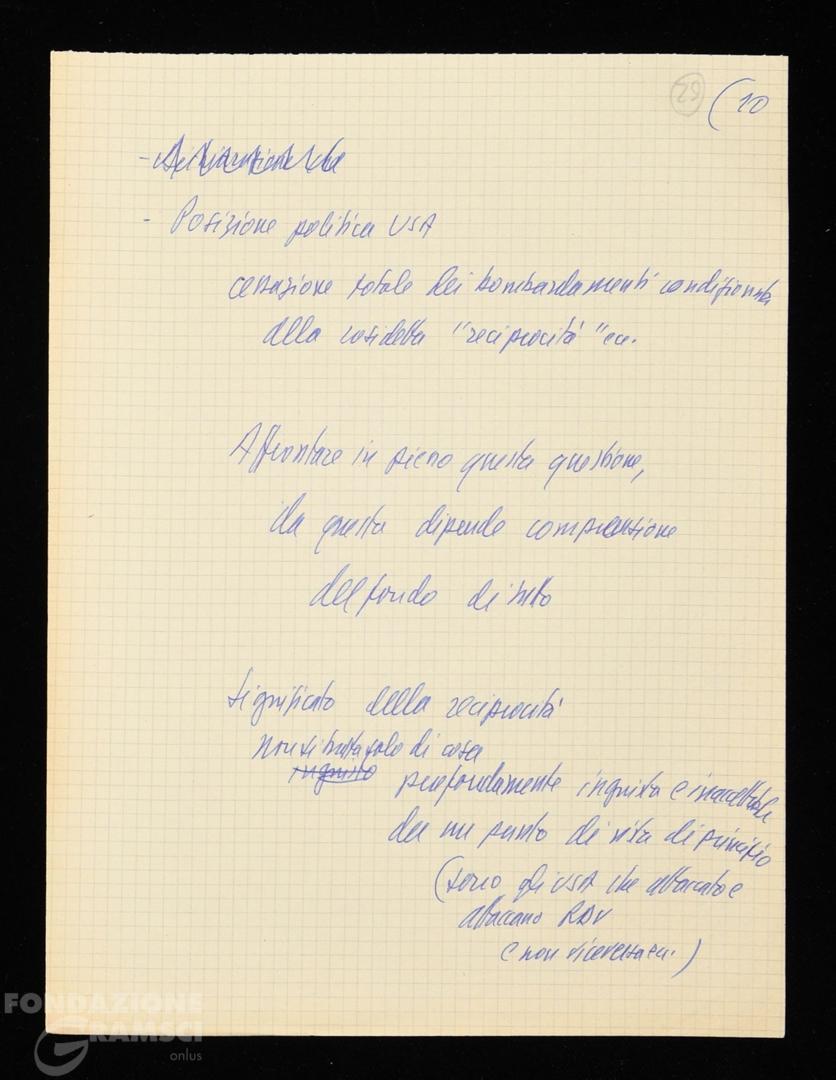 29 (10
- Posizione politica USA
cessazione totale dei bombardamenti condizionata
alla cosidetta "reciprocità" ecc.
Affrontare in pieno questa questione,
da questa dipende comprensione
del fondo di tutto
Significato della reciprocità
non si tratta solo di cosa
ingiusto
profondamente ingiusta e inaccettabile
da un punto di vista di principio
(sono gli USA che attaccato e
attaccano RDV
e non viceversa ecc.)
FONDAZIONE
GRAMSCI
onlus